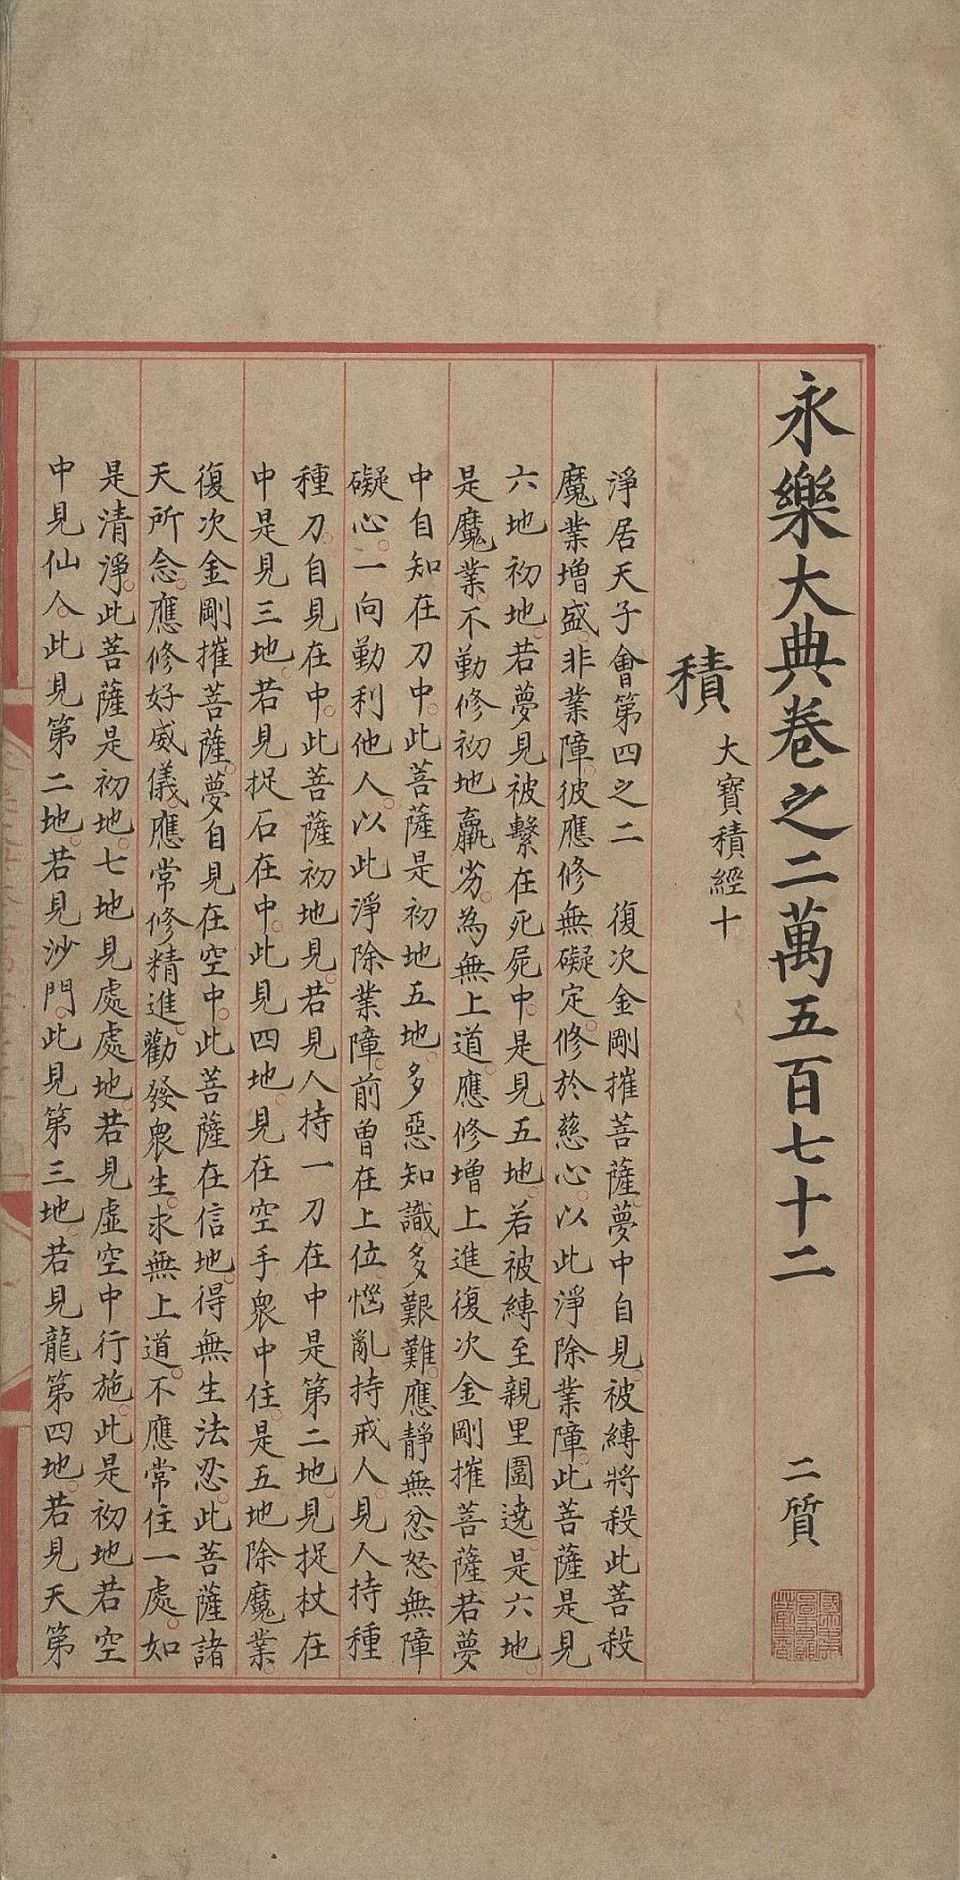 永樂大典卷之二萬五百七十二 二質
積 大寶積經十
淨居天子會第四之二 復次金剛摧菩薩夢中自見被縛將殺此菩殺
魔業增盛非業障彼應修無礙定修於慈心以此淨除業障此菩薩是見
六地初地若夢見被繫在死屍中是見五地若被縛至親里圍遶是六地
是魔業不勤修初地羸劣為無上道應修增上進復次金剛摧菩薩若夢
中自知在刀中此菩薩是初地五地多惡知識多艱難應靜無忿怒無障
礙心一向勤利他人以此淨除業障前曾在上位惱亂持戒人見人持種
種刀自見在中此菩薩初地見若見人持一刀在中是第二地見捉杖在
中是見三地若見捉石在中此見四地見在空手眾中住是五地除魔業
復次金剛摧菩薩夢自見在空中此菩薩在信地得無生法忍此菩薩諸
天所念應修好威儀應常修精進勸發衆生求無上道不應常住一處如
是清淨此菩薩是初地七地見處處地若見虛空中行施此是初地若空
中見仙人此見第二地若見沙門此見第三地若見龍第四地若見天第